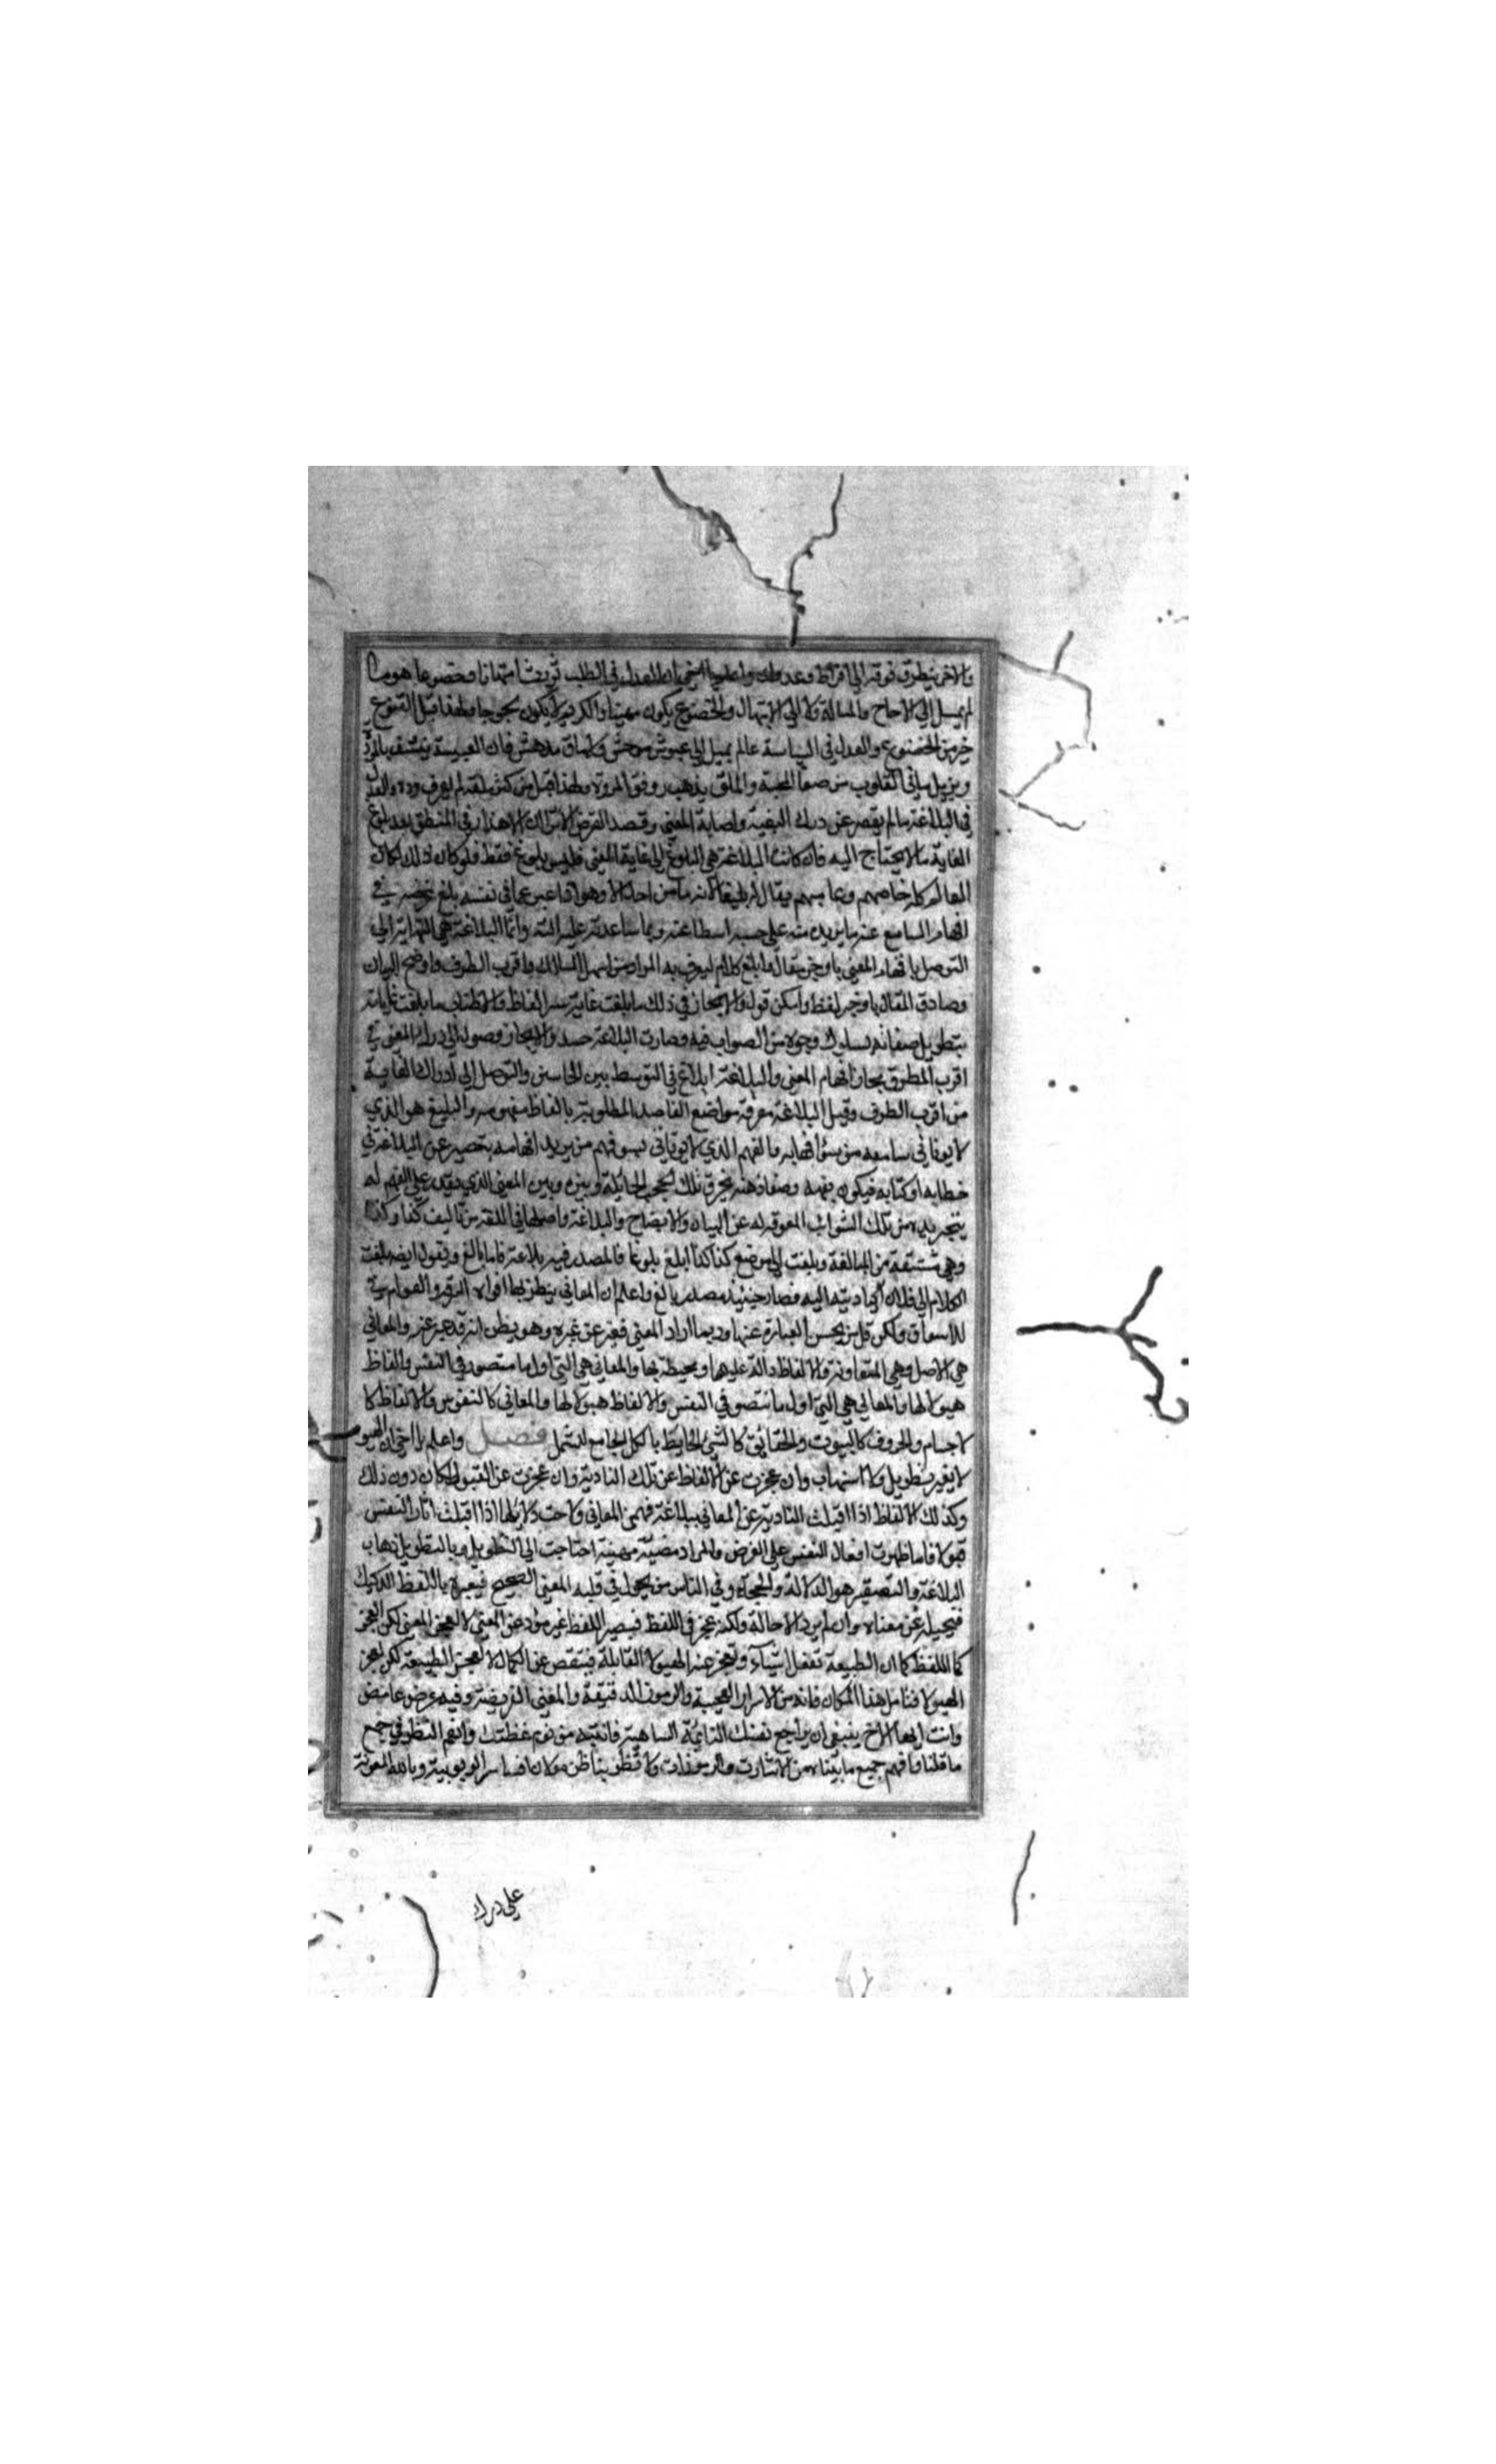 والاخر يتطرق فوقه الى افراط وعدوان واعلم يا اخي ان العدل في الطلب ثم يحث امتهانا وخضوعا هو ما
لم يميل الى الالحاح والمسالة ولا الى الابتهال والخضوع يكون مهينا والكريم لا يكون لجوجا ولهذا قيل القنوع
خير من الخضوع والعدل في السياسة عالم يميل الى عبوس موحش ولا ملق مدهش فان العبيسة
ويزيل ما في القلوب من صفا المحبة والملق يذهب رونق المروة ولهذا قيل من كثر ملقه لم يعرف وده والعدل
في البلاغة ما لم يقصر عن درك البغية واصابة المعنى وقصد الغرض لان الاهذار في المنطق بعد بلوغ
الغاية ما لا يحتاج اليه فان كانت البلاغة هي البلوغ الى غاية المعنى فليس بلوغ فقط فلو كان ذلك لكان
العالم كله خاصهم وعامهم يقال له بليغا لانه ما من احد الا وهو اذا عبر عما في نفسه بلغ غرضه في
افهام السامع عنه ما يريده منه على حسب اسطاعته وبما ساعدته عليه الته وانما البلاغة هي النهاية الى
التوصل بافهام المعنى باوجز مقال وابلغ كلام ليعرف به المراد من اسهل المسالك واقرب الطرق واوضح البيان
وصادق المقال باوجز لفظ وامكن قول والايجاز في ذلك ما بلغت غايته الفاظ والاطناب ما بلغت غاياته
بتطويل صفاته لسلوك وجوه من الصواب فيه وصارت البلاغة حسد والايجاز وصول الى درك المعنى في
اقرب الطرق بجاز افهام المعنى والبلاغة ابلاغ في التوسط بين الحاسن والتوصل الى ادراك الغاية
من اقرب الطرق وقيل البلاغة معرفة مواضع القاصد المطلوبة بالفاظ مفهومه والبليغ هو الذي
لا يوتا في سامعه من سؤ افهامه والفهم الذي لا يوتا في سو فهم من يريد افهامه بتحصيره عن البلاغة في
خطابه او كتابه فيكون بفهمه وصفاء ذهنه يخرق تلك الحجب الحايلة وبينه وبين المعنى الذي يقدر على الفهم له
بتجريده من تلك الشوائب المعوقه له عن البيان والايضاح والبلاغة واصلها في اللغة من تاليف كذا وكذا
وهي مشتقة من المبالغة وبلغت الى موضع كذا كذا ابلغ بلوغا فالمصدر فيه بلاغة فانا بالغ وتقول ايضه بلغت
الكلام الى فلان اي اديته اليه فصار حينيذ مصدر بالغ واعلم ان المعاني ينطق بها افواه الرقيم والعوام في
الاسواق ولكن قل من يحسن العبارة عنها وربما اراد المعنى فعبر عن غيره وهو يظن انه قد عبر عنه والمعاني
هي الاصل وهي المتفاوتة والالفاظ دالة عليها ومحيطة بها والمعاني هي التي اول ما متصور في النفس والفاظ
هيولا لها والمعاني هي التي اول ما تتصو في النفس والالفاظ هيولا لها والمعاني كالنفوس والالفاظ كا
لاجسام والحروف كالبيوت والحقائق كالشي الحايط بالكل الجامع للشمل فصل واعلم يا اخي ان الهيو
لا يغير بتطويل ولا اسهاب وان عجزت عن الالفاظ عن تلك التادية وان عجزت عن القبول لها كان دون ذلك
وكذلك الالفاظ اذا اقبلت التادية عن المعاني ببلاغة فهمن المعاني ولاحت دلايلها اذا اقبلت اثار النفس
قبولا فاما ظهرت افعال النفس على الغرض والمراد مضيئة مهيئة احتاجت الى التطويل وبالتطويل ذهاب
البلاغة والتصقير هو الدلالة والحجاء وفي الناس من يحول في قلبه المعنى الصحيح فيعبره باللفظ الركيك
فيحيله عن معناه وان لم يرد الاحالة ولكنه عجز في اللفظ فيصير اللفظ غير مؤد عن المعنى لا لعجز المعنى لكن لعجز
كما اللفظ كما ان الطبيعة تفعل اشياء وتعجز عنه الهيولا القابلة فينقص عن الكمال لا لعجز الطبيعة لكن لعجز
الهيولا فتامل هذا المكان فانه من الاسرار العجيبة والرموز الدقيقة والمعنى الغريضة وفيه غرض غامض
وانت ايها الاخ ينبغي ان يراجع نفسك النائمة الساهية فانتبه من نوم غفلتك وانعم النظر في جميع
ما قلنا وافهم جميع ما بيناه من الاشارات والرموزات ولا تظن بنا ظن سو لان هذا سر الربوبية وبالله المعونة
على درك